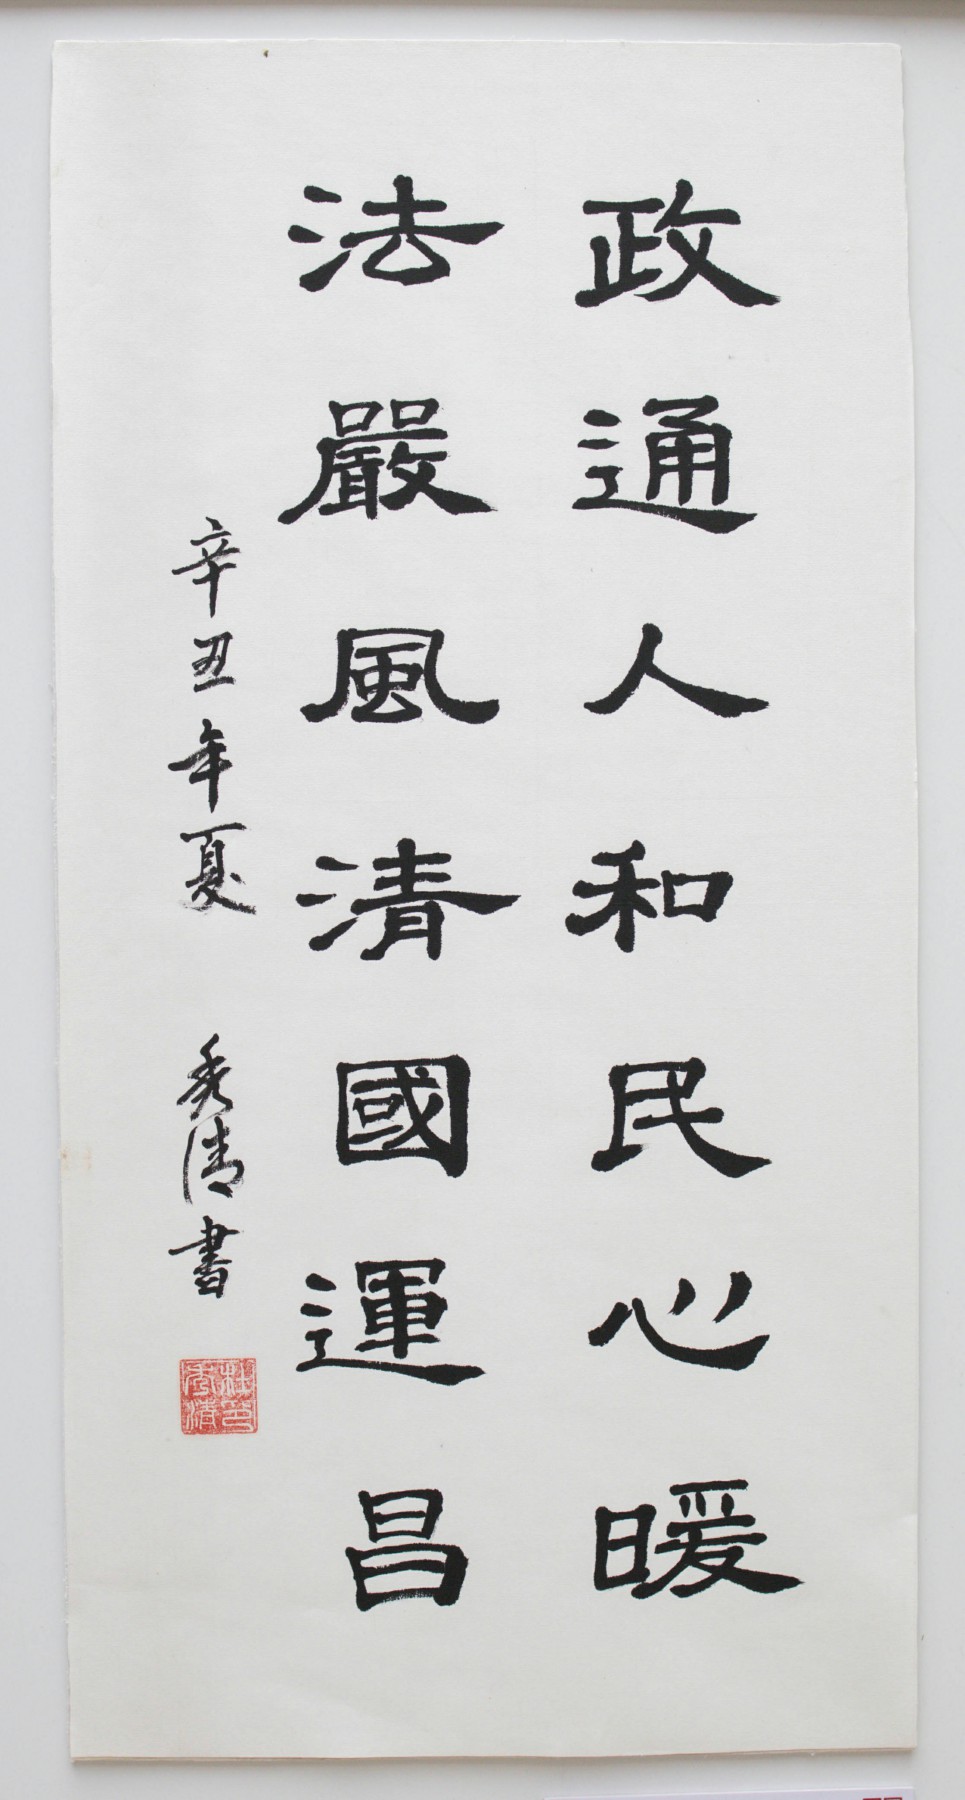 政通人和民心暖
法嚴風清國運昌
辛丑年夏 秀清書
杜秀清印